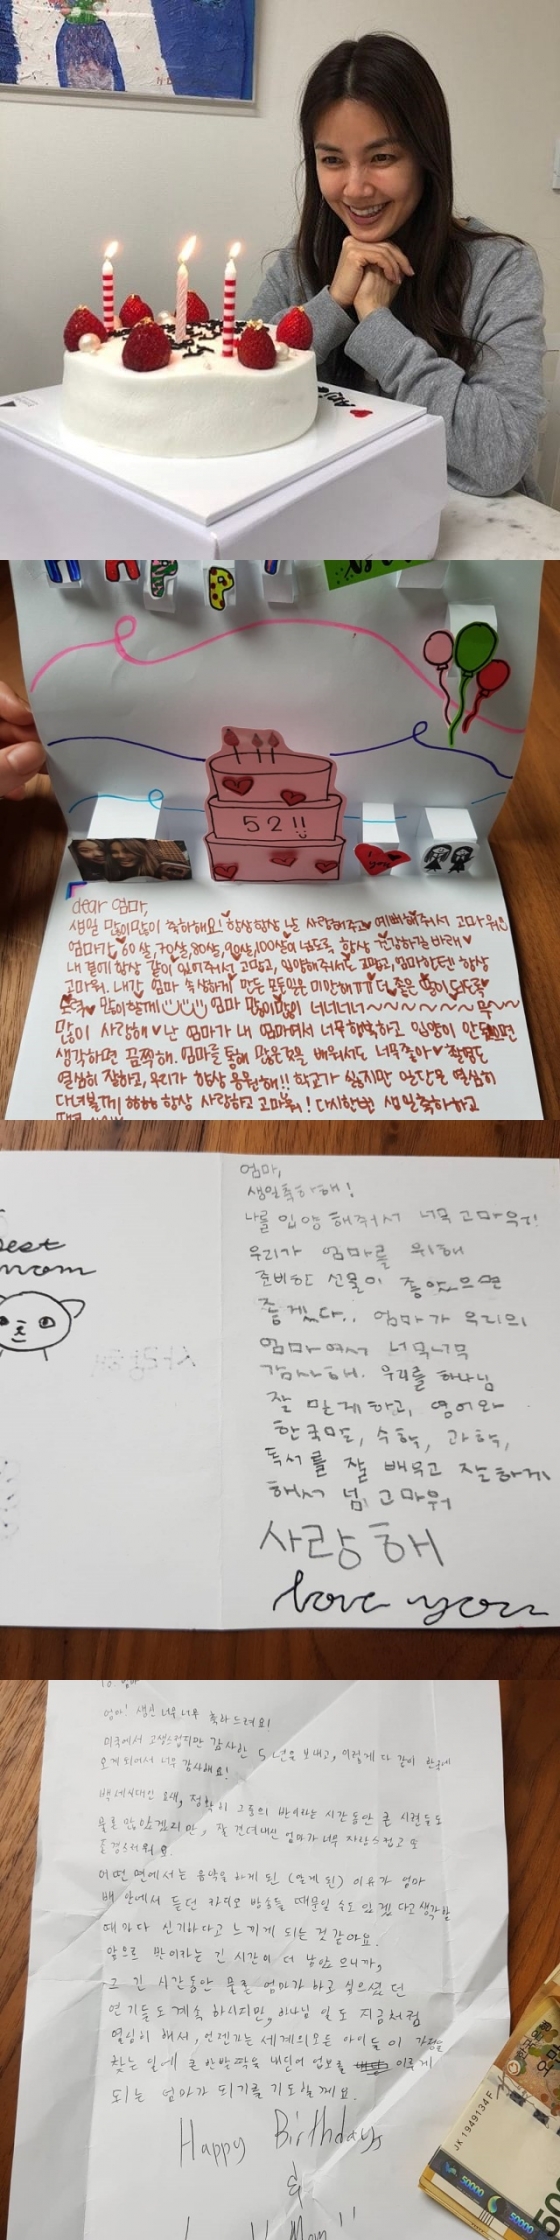 HAPPY
52!!
I
you
dear 엄마,
생일 많이많이 축하해요! 항상항상 날 사랑해주고 예뻐해줘서 고마워요
엄마가 60살,70살,80살,90살,100살이 넘도록 항상 건강하길 바래
내 곁에 항상 같이 있어줘서 고맙고, 입양해줘서도 고맙고, 엄마한텐 항상
고마워. 내가 엄마 속상하게 만든 모든일은 미안해ㅠㅠ 더 좋은 딸이 되도록
노력 많이할께 엄마 많이많이 너너너너~~~~~
많이 사랑해 난 엄마가 내 엄마여서 너무행복하고 입양이 안됬으면
생각하면 끔찍해. 엄마를 통해 많은것을 배워서도 너무좋아 촬영도
열심히 잘하고, 우리가 항상 응원해!! 학교가 싫지만 일단은 열심히
다녀볼께 하하 항상 사랑하고 고마워! 다시한번 생일축하하고
best
mom
엄마,
생일축하해!
나를 입양 해주셔서 너무 고마워!
우리가 엄마를 위해
준비한 선물이 좋았으면
좋겠다.. 엄마가 우리의
엄마여서 너무너무
감사해. 우리를 하나님
잘 믿게하고, 영어와
한국말, 수학, 과학,
독서를 잘 배우고 잘하게
해줘서 넘 고마워
사랑해
love you
To. 엄마
엄마! 생신 너무너무 축하드려요!
미국에서 고생스럽지만 감사한 5년을 보내고, 이렇게 다 같이 한국에
오게되어서 너무 감사해요!
백세시대인 요새, 정확히 그중의 반이라는 시간동안 큰 시련들도
물론 많았겠지만, 잘 견뎌내신 엄마가 너무 자랑스럽고 또
존경스러워요.
어떤 면에서는 음악을 하게 된 (알게 된) 이유가 엄마
배 안에서 듣던 라디오 방송들 때문일 수도 있겠다고 생각할
때마다 신기하다고 느끼게 되는 것 같아요.
앞으로 반이라는 긴 시간이 더 남았으니까,
그 긴 시간동안 물론 엄마가 하고 싶으셨던
연기들도 계속 하시지만, 하나님 일도 지금처럼
열심히 해서, 언젠가는 세계의 모든 아이들이 가정을
찾는 일에 큰 한발짝을 내딛어 이루게
되는 엄마가 되기를 기도할게요.
Happy Birthday
&
Mom!!
한국은행
JK 1949134 F
50000